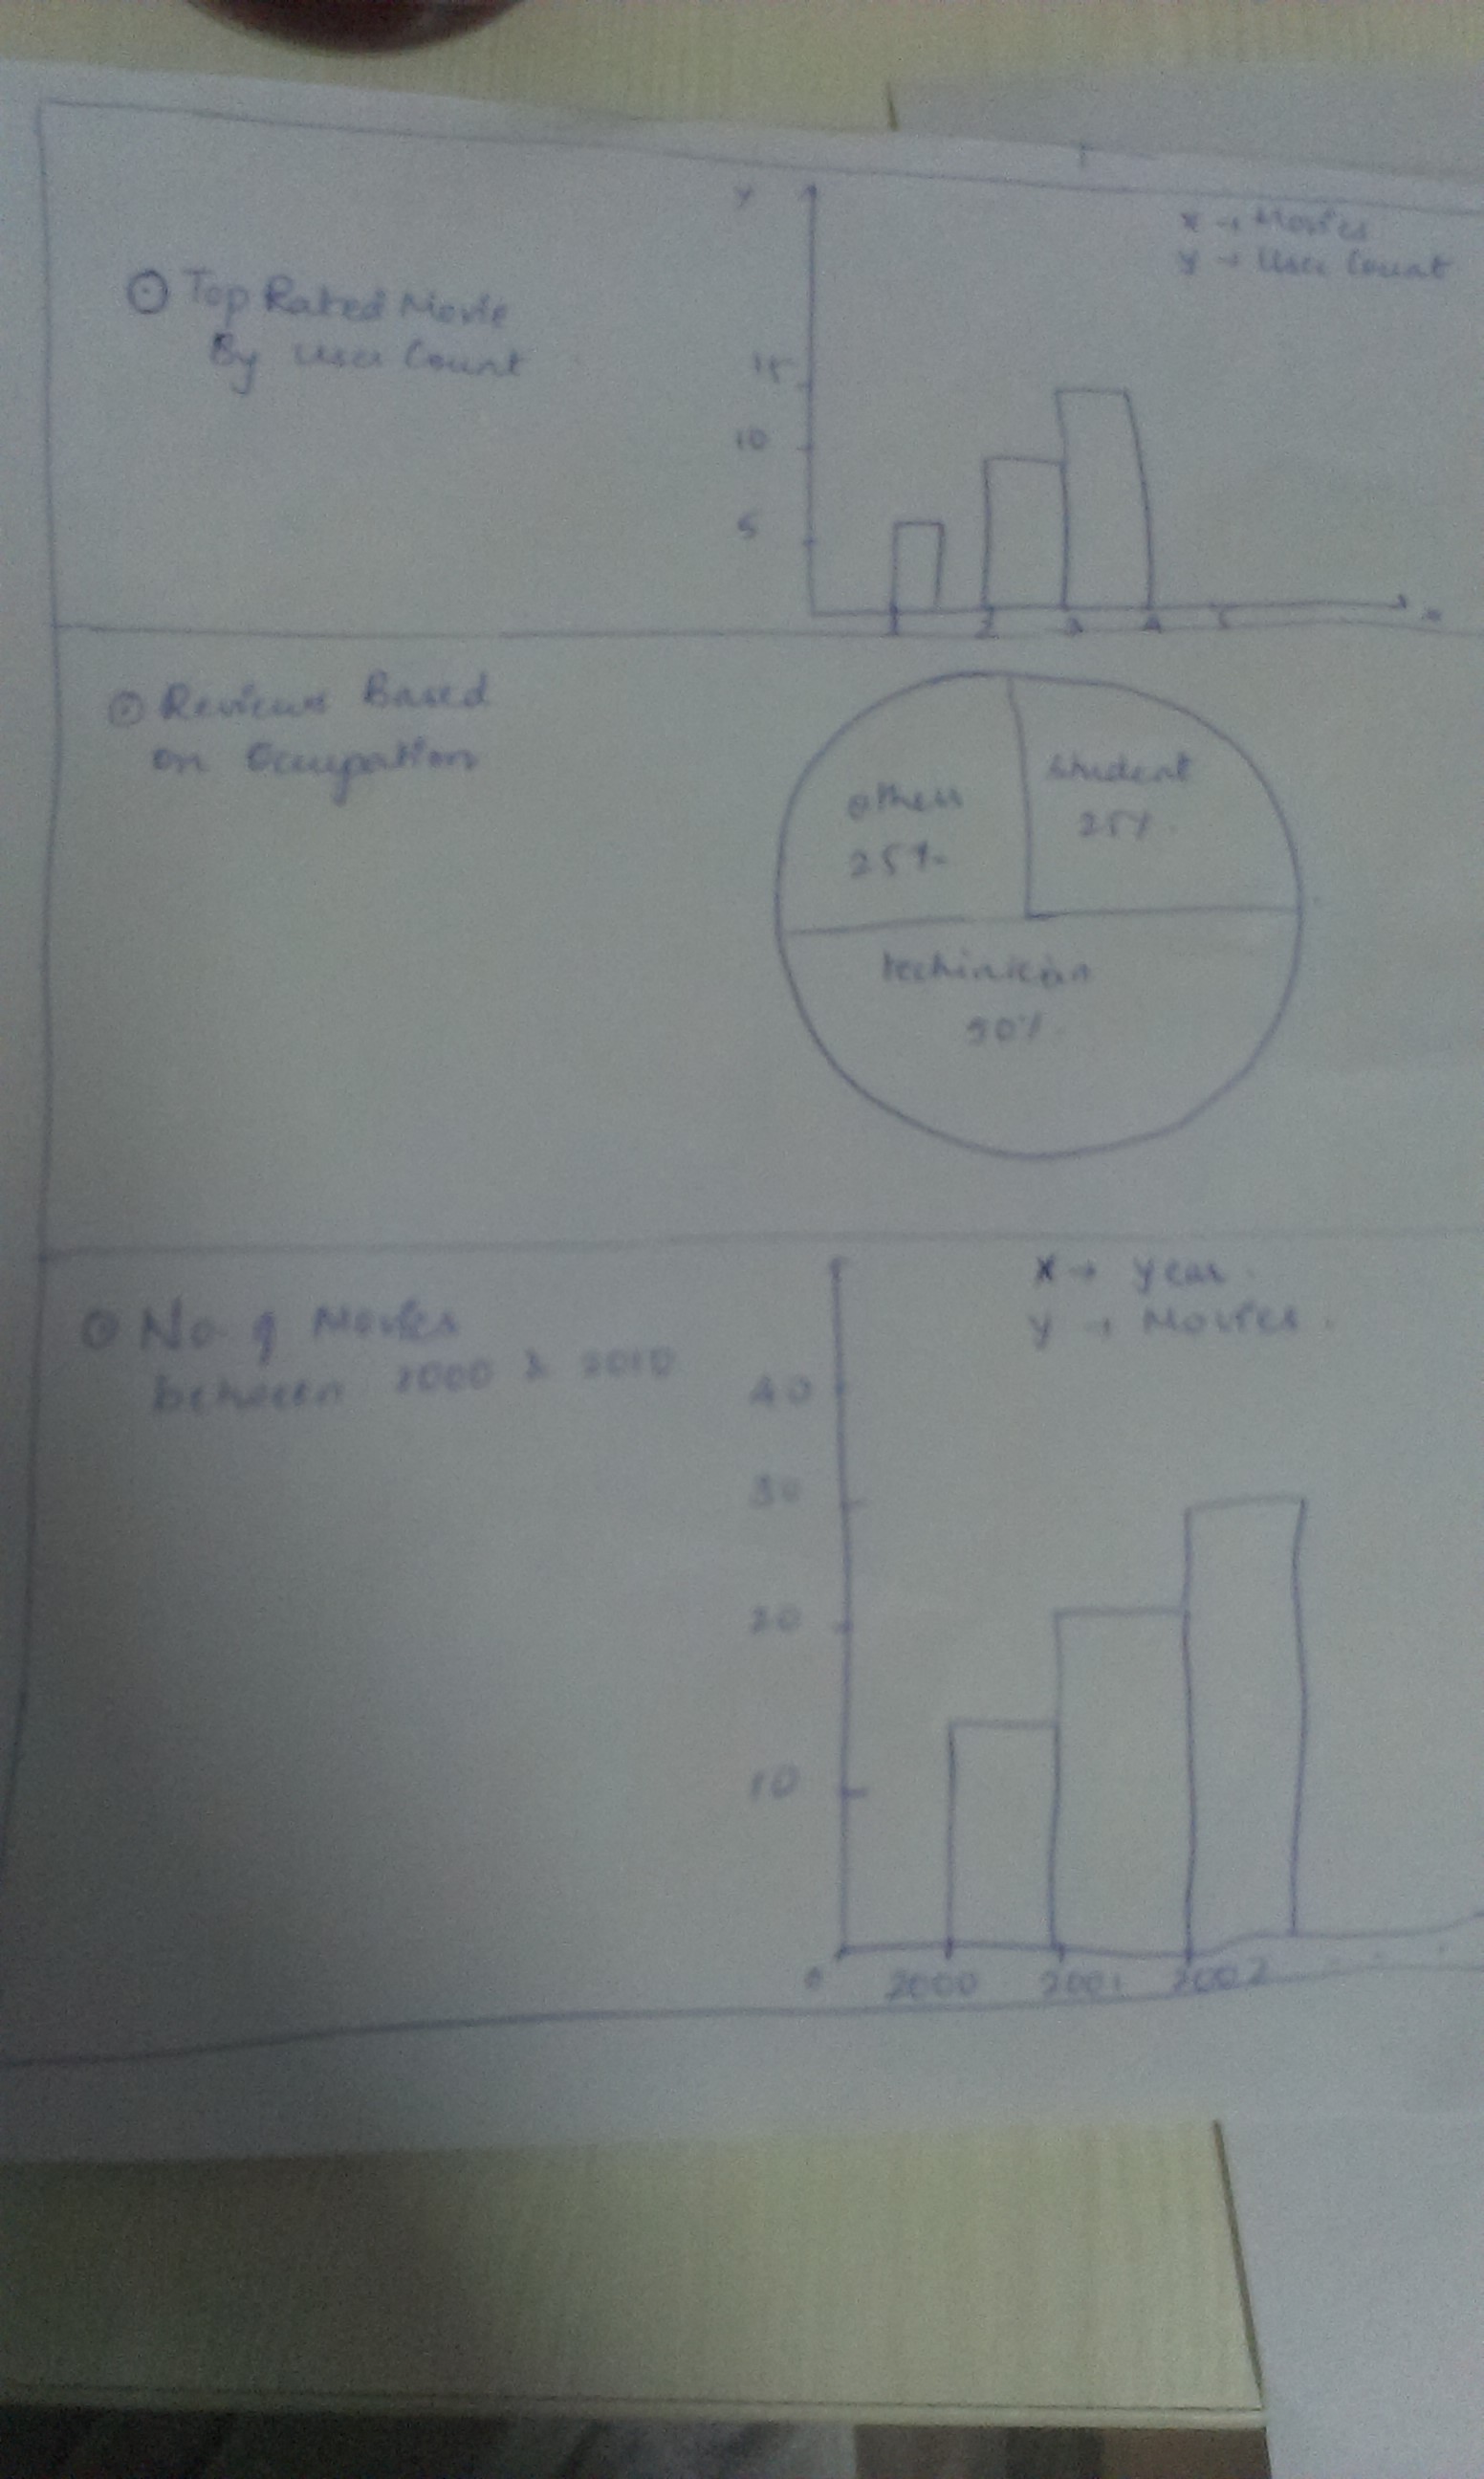 Top Rated Movie
By User Count
y
x → Movies
y → User Count
15
10
5
1 2 3 4 5
x
Reviews Based
on Occupation
others
25%
Student
25%
techinician
50%
No. of Movies
between 2000 & 2010
x → year
y → Movies
40
30
20
10
0 2000 2001 2002